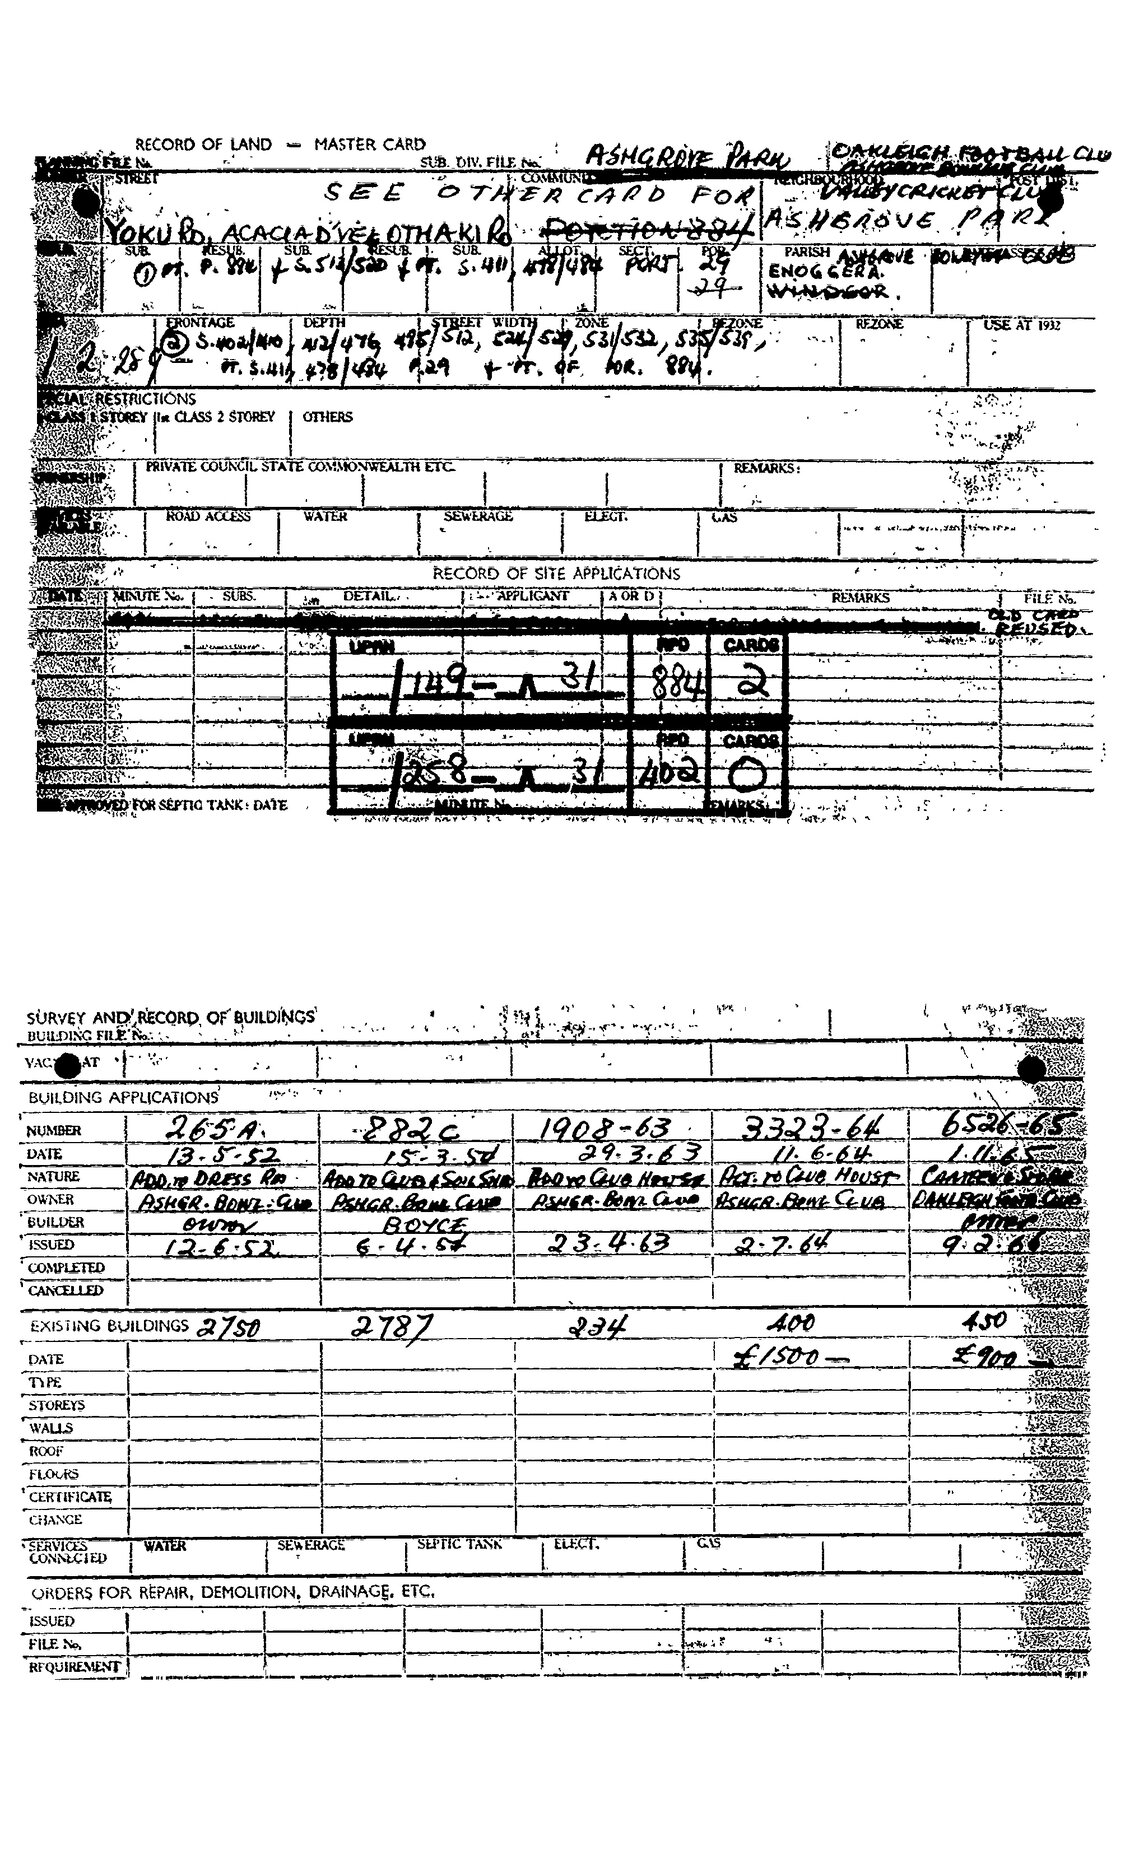 RECORD OF LAND — MASTER CARD
PLANNING FILE No.
SUB. DIV. FILE No.
ASHGROVE PARK
OAKLEIGH FOOTBALL CLU
ASHGROVE BOWLING CLUB
STREET
COMMUNI
NEIGHBOURHOOD
POST DIST.
VALLEY CRICKET CLU
SEE OTHER CARD FOR
ASHGROVE PARK
YOKU RD, ACACIA DVE & OTHAKI RD
PORTION 884
SUB. RESUB. SUB. RESUB. SUB. ALLOT. SECT. POR. PARISH
① PT. P. 884 & S. 512/520 & PT. S. 411, 478/484 PORT. 29
29
ENOGGERA.
WINDSOR.
FRONTAGE DEPTH STREET WIDTH ZONE REZONE REZONE USE AT 1932
② S. 402/410, 412/476, 495/512, 524/529, 531/532, 535/539,
PT. S. 411, 478/484 P.29 & PT. OF POR. 884.
SPECIAL RESTRICTIONS
CLASS 1 STOREY 1st CLASS 2 STOREY OTHERS
OWNERSHIP
PRIVATE COUNCIL STATE COMMONWEALTH ETC. REMARKS:
SERVICES AVAILABLE
ROAD ACCESS WATER SEWERAGE ELECT. GAS
RECORD OF SITE APPLICATIONS
DATE MINUTE No. SUBS. DETAIL APPLICANT A OR D REMARKS FILE No.
OLD CARD
REUSED.
UPRN RPD CARDS
149 — A 31 884 2
UPRN RPD CARDS
258 — A 31 402 0
APPROVED FOR SEPTIC TANK: DATE MINUTE No. REMARKS:
SURVEY AND RECORD OF BUILDINGS
BUILDING FILE No.
VAC AT
BUILDING APPLICATIONS
NUMBER 265A. 882C 1908-63 3323-64 6526-65
DATE 13-5-52 15-3-54 29.3.63 11.6.64 1.11.65
NATURE ADD. TO DRESS RM ADD TO CLUB & SOIL SHED ADD TO CLUB HOUSE ALT. TO CLUB HOUSE CANTEEN & STORE
OWNER ASHGR. BOWL. CLUB ASHGR. BOWL CLUB ASHGR. BOWL CLUB ASHGR. BOWL CLUB OAKLEIGH FOOTB CLUB
BUILDER owner BOYCE owner
ISSUED 12-6-52 6-4-54 23-4-63 2-7-64 9.2.66
COMPLETED
CANCELLED
EXISTING BUILDINGS 2750 2787 234 400 450
DATE £1500 — £900 —
TYPE
STOREYS
WALLS
ROOF
FLOORS
CERTIFICATE
CHANGE
SERVICES CONNECTED WATER SEWERAGE SEPTIC TANK ELECT. GAS
ORDERS FOR REPAIR, DEMOLITION, DRAINAGE, ETC.
ISSUED
FILE No.
REQUIREMENT